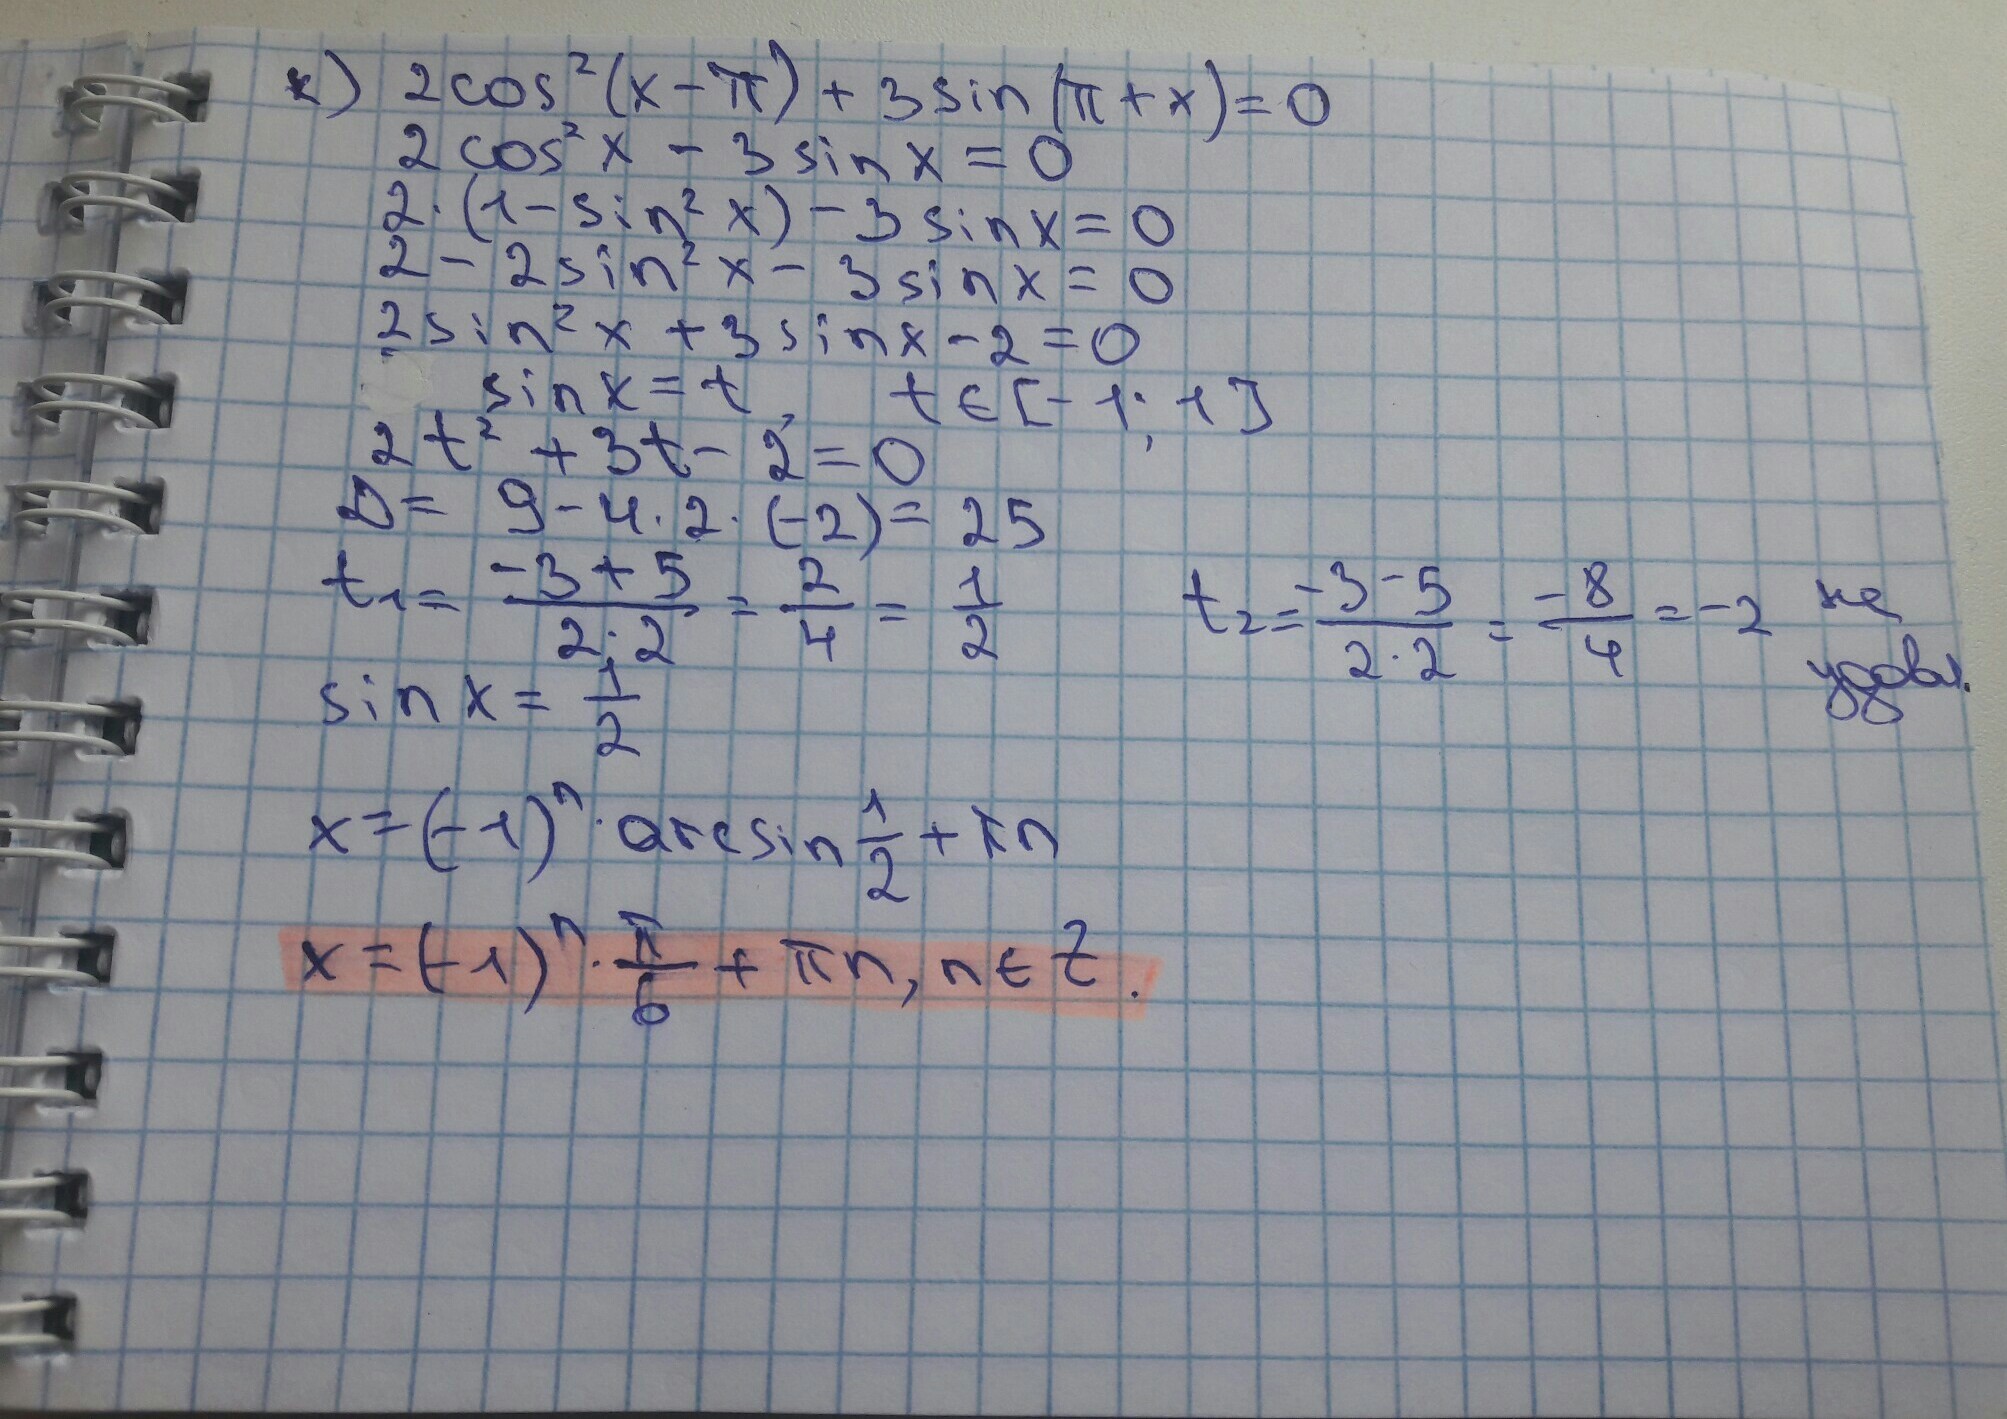 к) 2cos²(x-π) + 3sin(π+x)=0
2cos²x - 3sinx=0
2·(1-sin²x)-3sinx=0
2-2sin²x-3sinx=0
2sin²x+3sinx-2=0
sinx=t, t∈[-1;1]
2t²+3t-2=0
D= 9-4·2·(-2)=25
t₁= (-3+5)/(2·2) = 2/4 = 1/2 t₂= (-3-5)/(2·2) = -8/4 = -2 не удовл.
sinx= 1/2
x=(-1)ⁿ·arcsin 1/2 + πn
x=(-1)ⁿ· π/6 + πn, n∈Z.